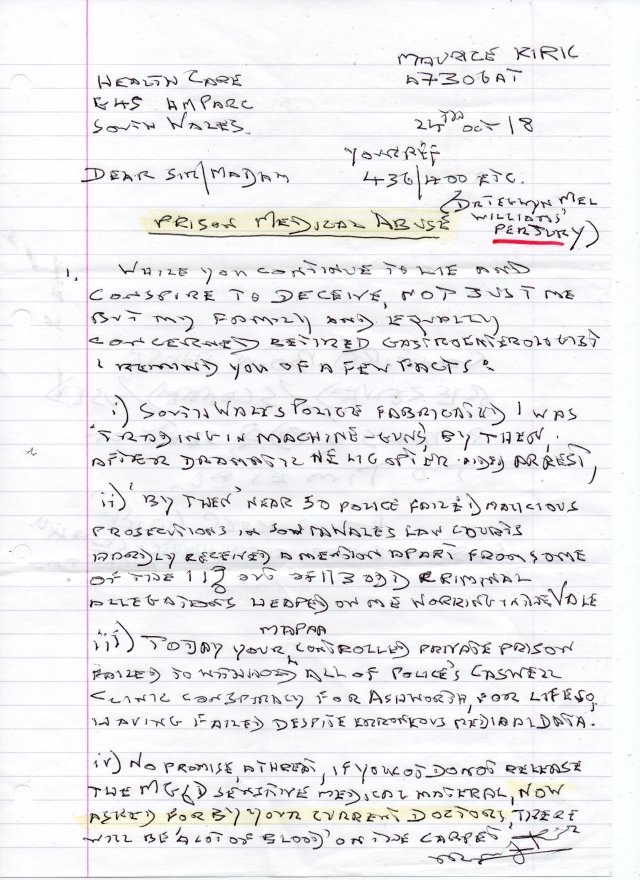 MAURICE KIRK
HEALTH CARE A7306AT
G4S HMPARC
SOUTH WALES. 24TH OCT 18
YOUR REF
DEAR SIR/MADAM 436/400 ETC.
PRISON MEDICAL ABUSE (DR TEGWYN MEL
WILLIAMS'
PERJURY)
1. WHILE YOU CONTINUE TO LIE AND
CONSPIRE TO DECEIVE, NOT JUST ME
BUT MY FAMILY AND EQUALLY
CONCERNED RETIRED GASTROENTEROLOGIST
I REMIND YOU OF A FEW FACTS:
i) SOUTH WALES POLICE FABRICATED I WAS
'TRADING IN MACHINE-GUNS', BY THEN,
AFTER DRAMATIC HELICOPTER AIDED ARREST,
ii) 'BY THEN' NEAR 30 POLICE FAILED MALICIOUS
PROSECUTIONS IN SOUTH WALES LAW COURTS
HARDLY RECEIVED A MENTION APART FROM SOME
OF THE OUT OF 113 ODD CRIMINAL
ALLEGATIONS HEAPED ON ME WORKING IN THE VALE
MAPPA
iii) TODAY YOUR CONTROLLED PRIVATE PRISON
FAILED TO ALL OF POLICE'S CASWELL
CLINIC CONSPIRACY FOR ASHWORTH, FOR LIFE SO,
HAVING FAILED DESPITE ERRONEOUS MEDICAL DATA.
iv) NO PROMISE, A THREAT, IF YOU LOT DO NOT RELEASE
THE SENSITIVE MEDICAL MATERIAL, NOW
ASKED FOR BY YOUR CURRENT DOCTORS, THERE
WILL BE 'A LOT OF BLOOD' ON THE CARPET,